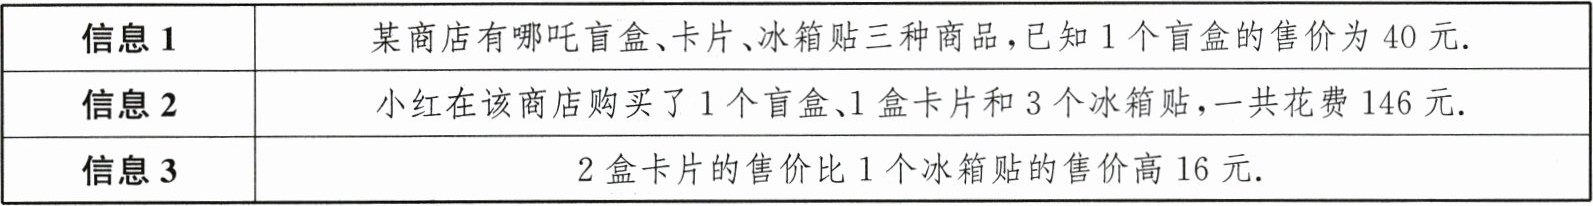 信息 1 某商店有哪吒盲盒、卡片、冰箱贴三种商品,已知 1 个盲盒的售价为 40 元.
信息 2 小红在该商店购买了 1 个盲盒、1 盒卡片和 3 个冰箱贴,一共花费 146 元.
信息 3 2 盒卡片的售价比 1 个冰箱贴的售价高 16 元.